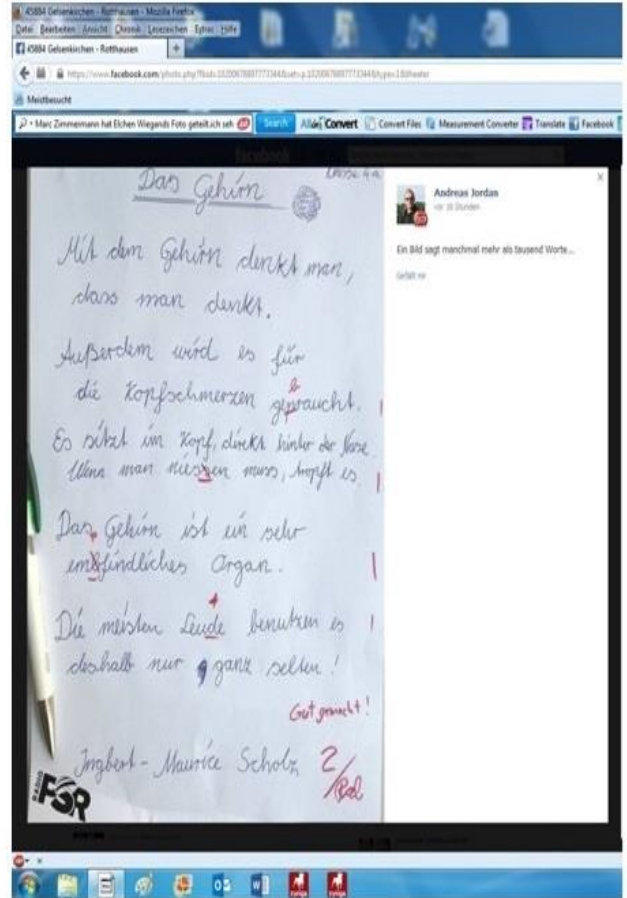 45884 Gelsenkirchen - Rotthausen - Mozilla Firefox
Datei Bearbeiten Ansicht Chronik Lesezeichen Extras Hilfe
45884 Gelsenkirchen - Rotthausen +
https://www.facebook.com/photo.php?
Meistbesucht
Marc Zimmermann hat Elchen Wiegands Foto geteilt.ich seh Search Convert Convert Files Measurement Converter Translate Facebook
facebook
Das Gehirn
Klasse 4a
Mit dem Gehirn denkt man,
dass man denkt.
Außerdem wird es für
b
die Kopfschmerzen gepraucht. |
Es sitzt im Kopf, direkt hinter der Nase.
Wenn man niessen muss, tropft es. |
Das Gehirn ist ein sehr
p
empfindliches Organ. |
t
Die meisten Leude benutzen es |
deshalb nur ganz selten!
Gut gemacht!
Ingbert-Maurice Scholz 2
RADIO FSR
Andreas Jordan
vor 16 Stunden
Ein Bild sagt manchmal mehr als tausend Worte...
Gefällt mir
x
zynga
zynga